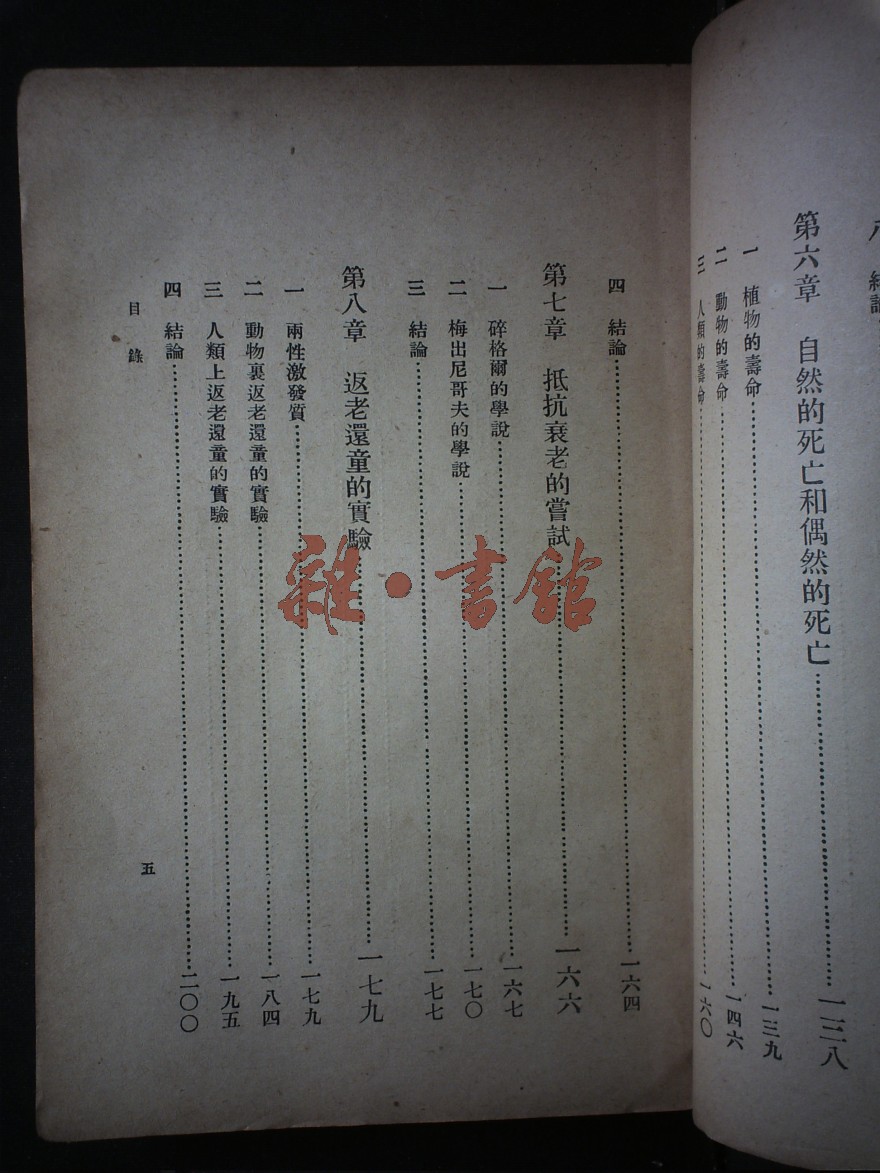 結論
第六章　自然的死亡和偶然的死亡……一三八
一　植物的壽命……一三九
二　動物的壽命……一四六
三　人類的壽命……一六〇
四　結論……一六四
第七章　抵抗衰老的嘗試……一六六
一　碎格爾的學說……一六七
二　梅出尼哥夫的學說……一七〇
三　結論……一七七
第八章　返老還童的實驗……一七九
一　兩性激發質……一七九
二　動物裏返老還童的實驗……一八四
三　人類上返老還童的實驗……一九五
四　結論……二〇〇
目錄
五
雜·書館